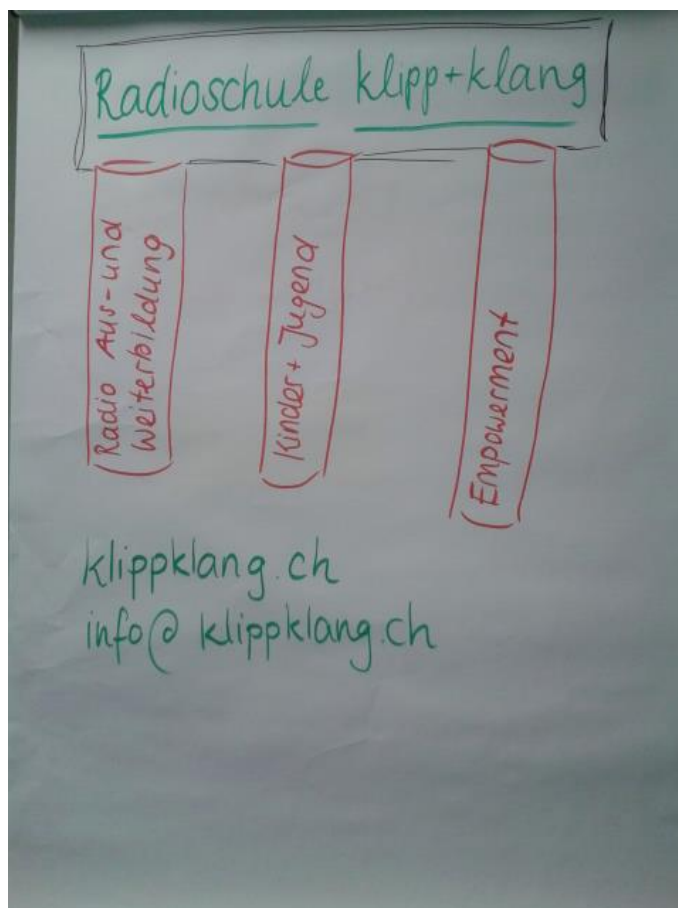 Radioschule klipp+klang
Radio Aus- und
Weiterbildung
Kinder+ Jugend
Empowerment
klippklang.ch
info@klippklang.ch